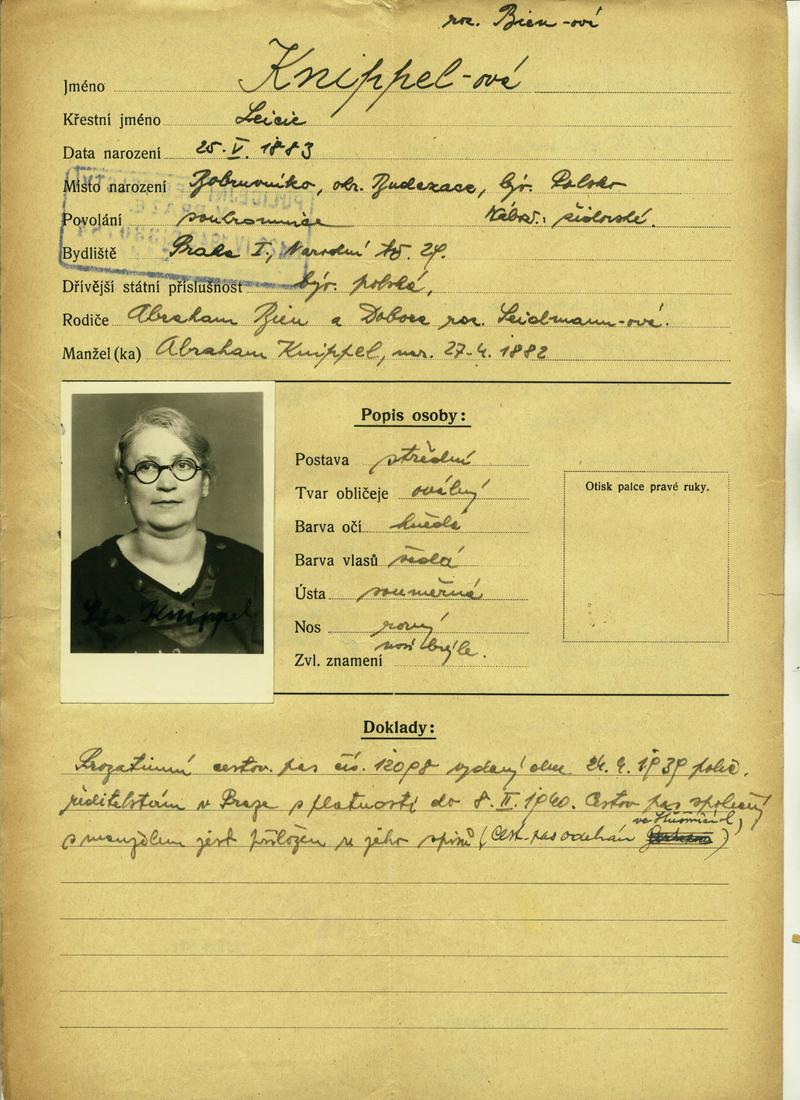 roz. Bien-ová
Jméno Knippel-ová
Křestní jméno
Data narození 25. V. 1883
Místo narození okr. býv. Polsko
Povolání soukromnice Nábož.: židovské.
Bydliště Praha I, Národní tř. 24.
Dřívější státní příslušnost býv. polská,
Rodiče Abraham Bien a roz. Seidmann-ová.
Manžel(ka) Abraham Knippel, nar. 27-4. 1882
Popis osoby:
Postava střední
Tvar obličeje oválný
Otisk palce pravé ruky.
Barva očí hnědá
Barva vlasů šedá
Ústa souměrná
Nos rovný
nosí brýle.
Zvl. znamení
Knippel
Doklady:
Prozatimní cestov. pas čís. 12098 vydaný dne 24. 4. 1939 polic.
ředitelstvím v Praze s platností do 8. II. 1940. Cestov. pas společný
s manželem jest přiložen u jeho spisů (Cest. pas odebrán )